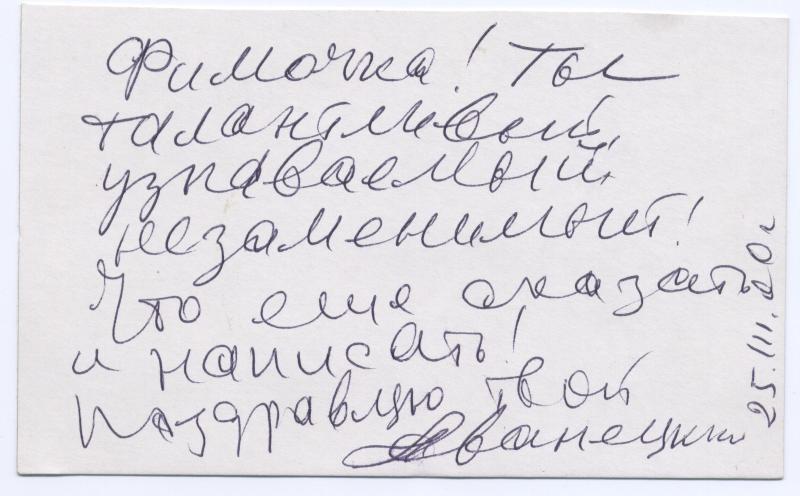 Фимочка! Ты
талантливый,
узнаваемый,
незаменимый!
Что еще сказать
и написать!
Поздравляю твой
Жванецкий
25.III.00г